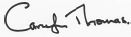 Carolyn Thomas.